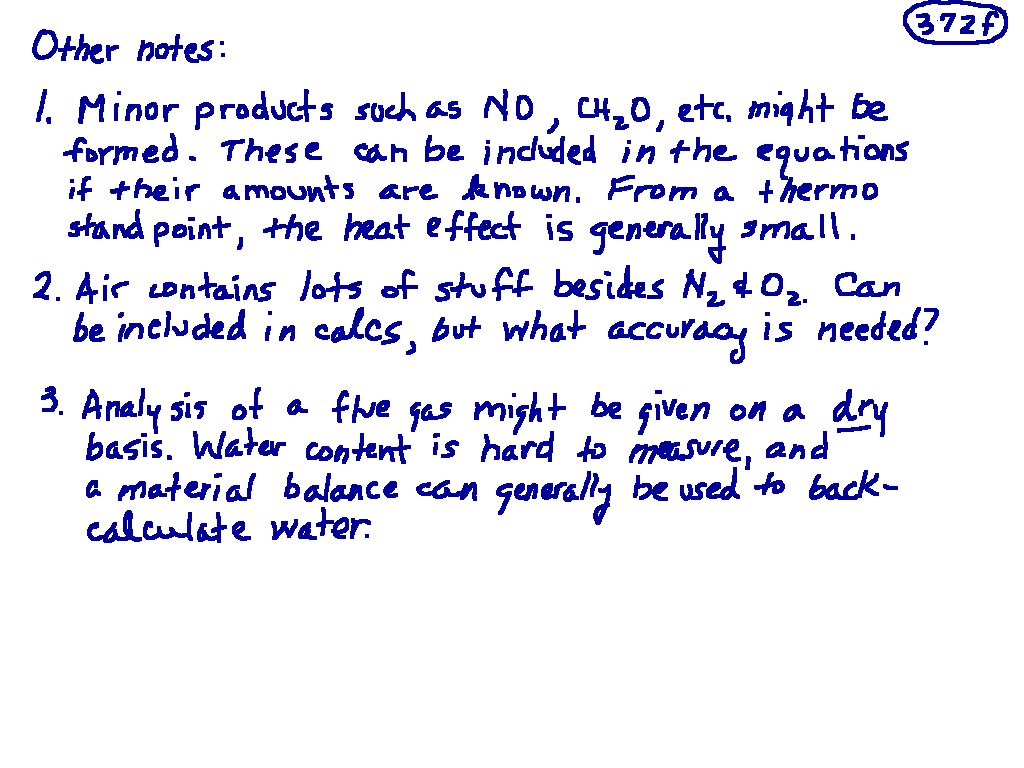 372f
Other notes:
1. Minor products such as NO, CH₂O, etc. might be
formed. These can be included in the equations
if their amounts are known. From a thermo
standpoint, the heat effect is generally small.
2. Air contains lots of stuff besides N₂ & O₂. Can
be included in calcs, but what accuracy is needed?
3. Analysis of a flue gas might be given on a dry
basis. Water content is hard to measure, and
a material balance can generally be used to back-
calculate water.